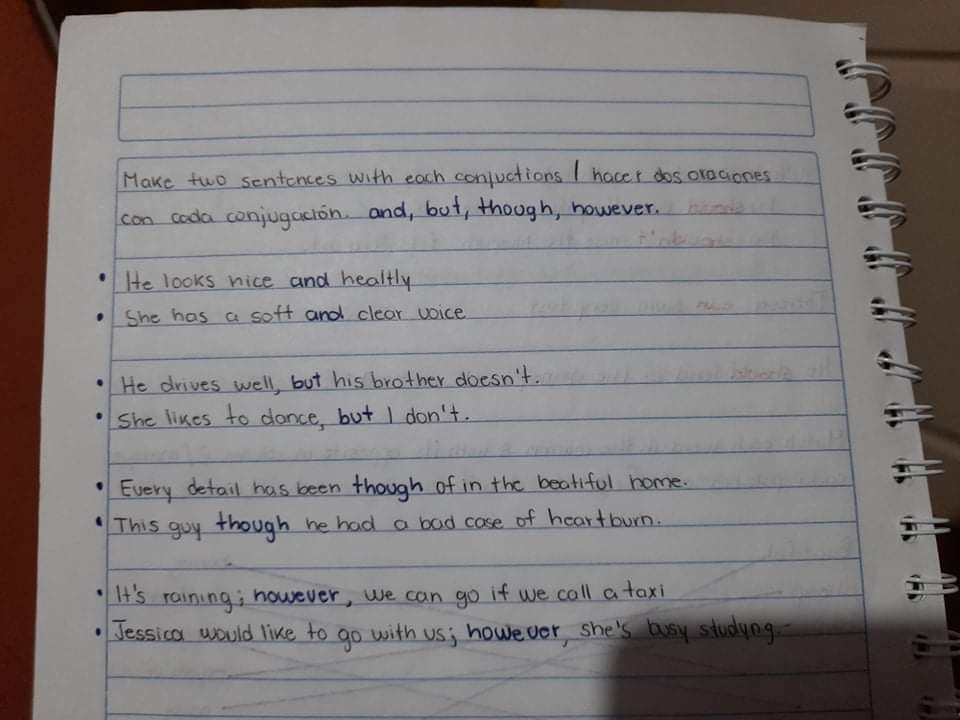 Make two sentences with each conjuctions / hacer dos oraciones
con cada conjugación. and, but, though, however.
• He looks nice and healtly
• She has a soft and clear voice
• He drives well, but his brother doesn't.
• She likes to dance, but I don't.
• Every detail has been though of in the beatiful home.
• This guy though he had a bad case of heartburn.
• It's raining; however, we can go if we call a taxi
• Jessica would like to go with us; however, she's busy studyng